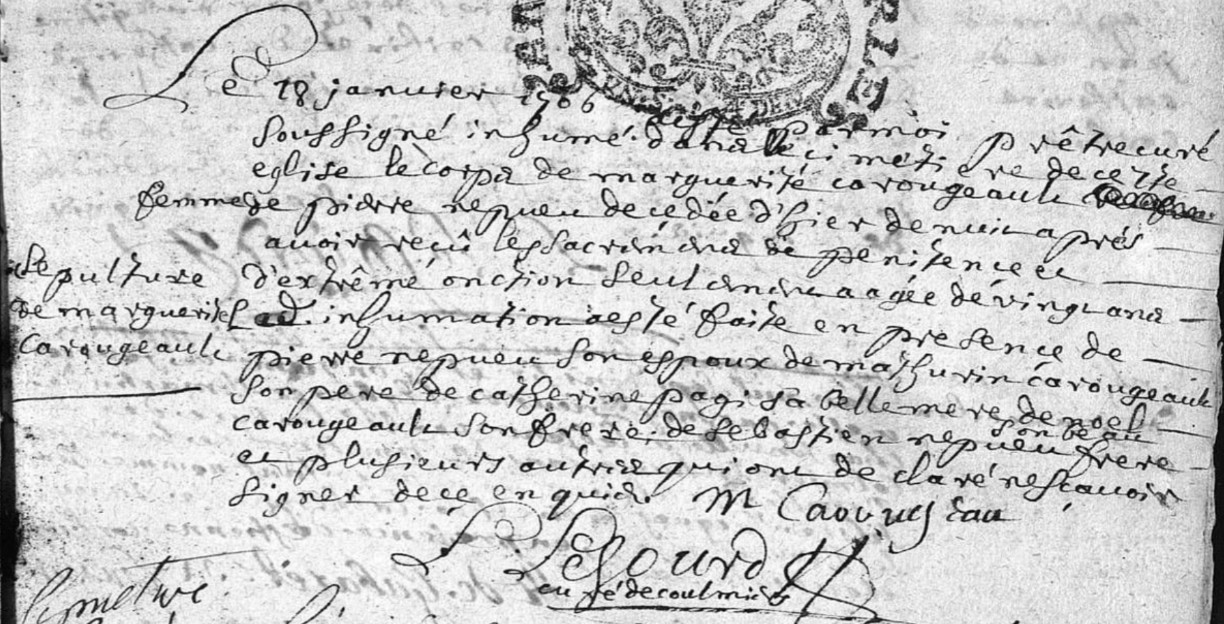 Le 18 janvier 1706 a esté par moi prêtre curé
soussigné inhumé dans le cimétiere de cette
eglise le corps de marguerite carougeault
femme de pierre nepueu decedée d'hier de nuit aprés
avoir reçû les sacremens de penitence et
Sepulture
de marguerite
Carougeault
d'extrême onction seulement aagée de vingt ans
Lad. inhumation a esté faite en presence de
pierre nepueu son espoux de mathurin carougeault
son pere de catherine pagi sa belle mere de noel
carougeault son frere, de sebastien nepueu son beau frere
et plusieurs autres qui ont declaré ne sçavoir
signer de ce enquis. M Carougeau
Le Sourd
curé de coulmiers